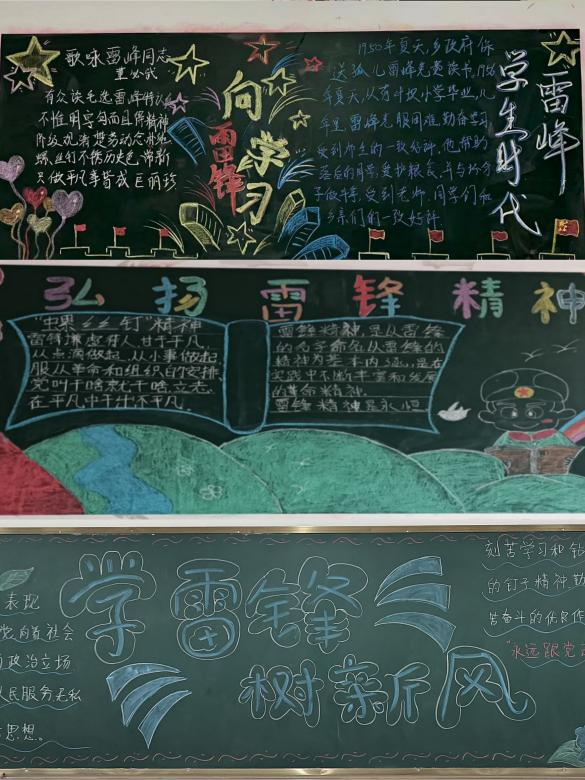 歌咏雷峰同志
董必武
有众读毛选雷峰特认
不惟明字句而且得精神
阶级观清楚劳动念
螺丝们不锈历史色常新
只做平凡事皆成巨丽珍
向
雷锋
学习
1950年夏天,乡政府保
送孤儿雷峰免费读书,1956
年夏天,从高小毕业,
年里雷峰克服困难,勤奋学习
受到师生的一致好评,他帮助
落后的同学,爱护粮食,并与坏分
子做斗争,受到老师、同学们和
乡亲们的一致好评
雷峰
学生时代
弘扬雷锋精神
"螺丝钉"精神
雷锋谦虚待人,甘于平凡,
从点滴做起,从小事做起,
服从革命和组织的安排,
党叫干啥就干啥,立志
在平凡中干出不平凡。
雷锋精神,是以雷锋
的名字命名,以雷锋的
精神为基本内涵,是在
实践中不断丰富和发展
的革命精神
雷锋精神是永恒
学雷锋
树新风
表现
党,向着社会
政治立场
人民服务无私
思想。
刻苦学习和钻
的钉子精神,勤
苦奋斗的优良作
"永远跟党走